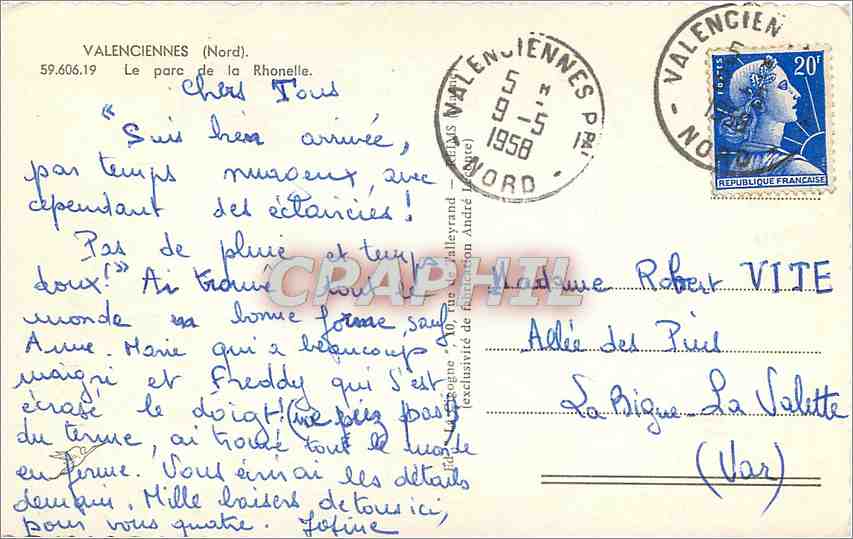 VALENCIENNES (Nord).
59.606.19 Le parc de la Rhonelle.
Chers Tous
"Suis bien arrivée,
par temps nuageux, avec
cependant des éclaircies!
Pas de pluie et temps
doux!" Ai trouvé tout le
monde en bonne forme, sauf
Anne-Marie qui a beaucoup
maigri et Freddy qui s'est
écrasé le doigt! (ne riez pas!)
du terme, ai trouvé tout le monde
en forme. Vous écrirai les détails
demain. Mille baisers de tous ici,
pour vous quatre. Josine
Madame Robert VITE
Allée des Pins
La Bigue - La Valette
(Var)
VALENCIENNES PPAL
5 H
9 - 5
1958
NORD
VALENCIEN
5
NORD
POSTES
20F
REPUBLIQUE FRANÇAISE
10, rue de Talleyrand — REIMS
(exclusivité de fabrication André
CPAPHIL